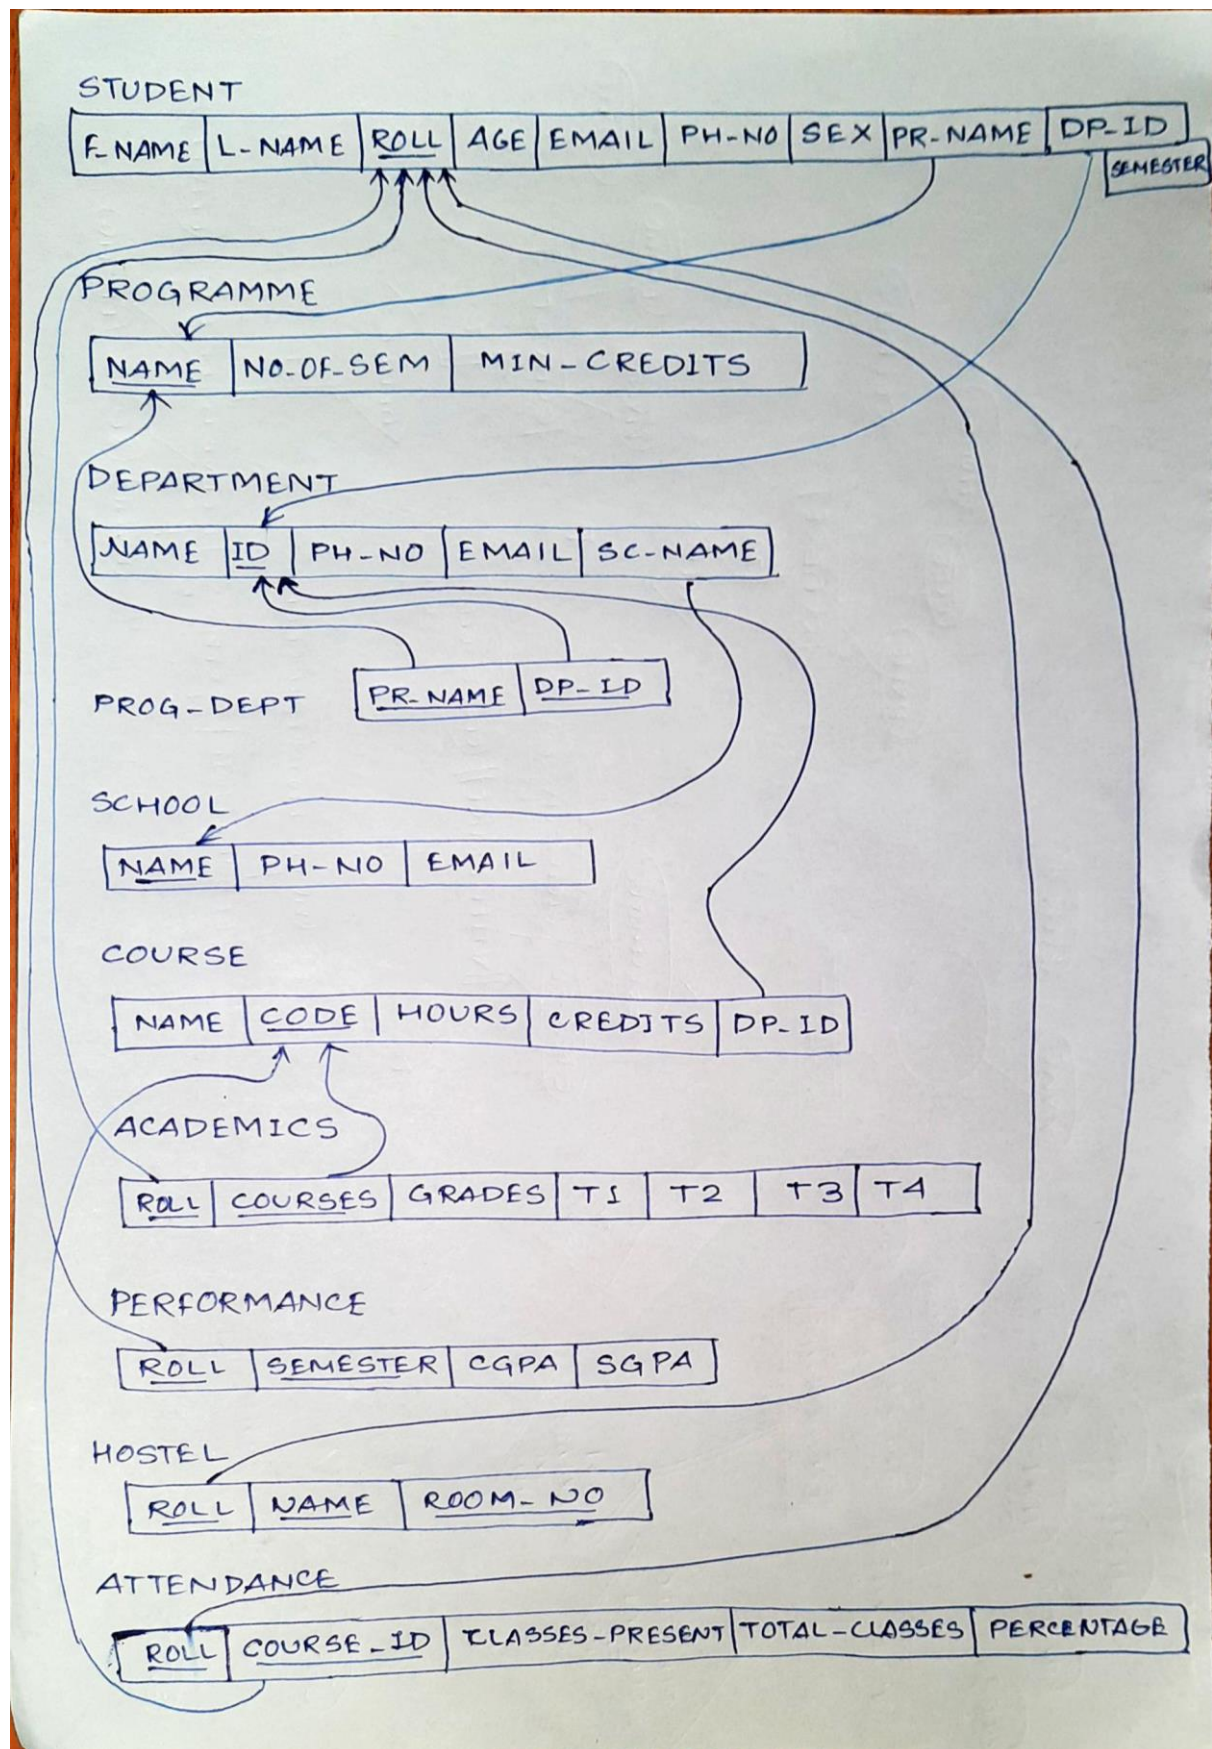 STUDENT
F-NAME L-NAME ROLL AGE EMAIL PH-NO SEX PR-NAME DP-ID
SEMESTER
PROGRAMME
NAME NO-OF-SEM MIN-CREDITS
DEPARTMENT
NAME ID PH-NO EMAIL SC-NAME
PROG-DEPT PR-NAME DP-ID
SCHOOL
NAME PH-NO EMAIL
COURSE
NAME CODE HOURS CREDITS DP-ID
ACADEMICS
ROLL COURSES GRADES T1 T2 T3 T4
PERFORMANCE
ROLL SEMESTER CGPA SGPA
HOSTEL
ROLL NAME ROOM-NO
ATTENDANCE
ROLL COURSE-ID CLASSES-PRESENT TOTAL-CLASSES PERCENTAGE